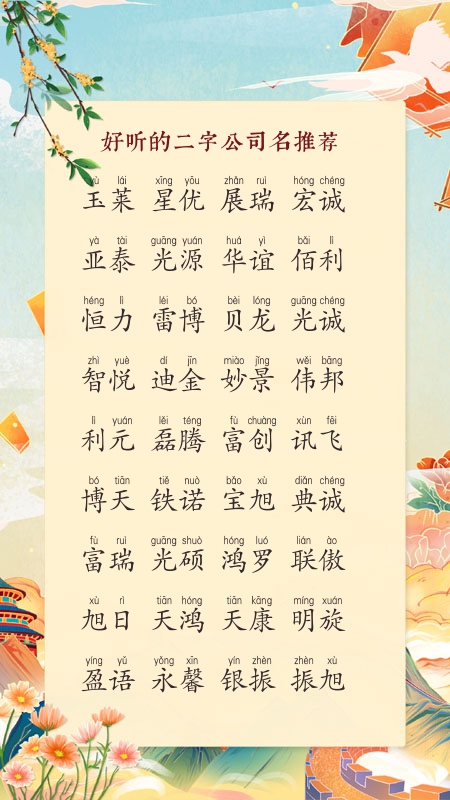 好听的二字公司名推荐
yù lái xīng yōu zhǎn ruì hóng chéng
玉莱 星优 展瑞 宏诚
yà tài guāng yuán huá yì bǎi lì
亚泰 光源 华谊 佰利
héng lì léi bó bèi lóng guāng chéng
恒力 雷博 贝龙 光诚
zhì yuè dí jīn miào jǐng wěi bāng
智悦 迪金 妙景 伟邦
lì yuán lěi téng fù chuàng xùn fēi
利元 磊腾 富创 讯飞
bó tiān tiě nuò bǎo xù diǎn chéng
博天 铁诺 宝旭 典诚
fù ruì guāng shuò hóng luó lián ào
富瑞 光硕 鸿罗 联傲
xù rì tiān hóng tiān kāng míng xuán
旭日 天鸿 天康 明旋
yíng yǔ yǒng xīn yín zhèn zhèn xù
盈语 永馨 银振 振旭